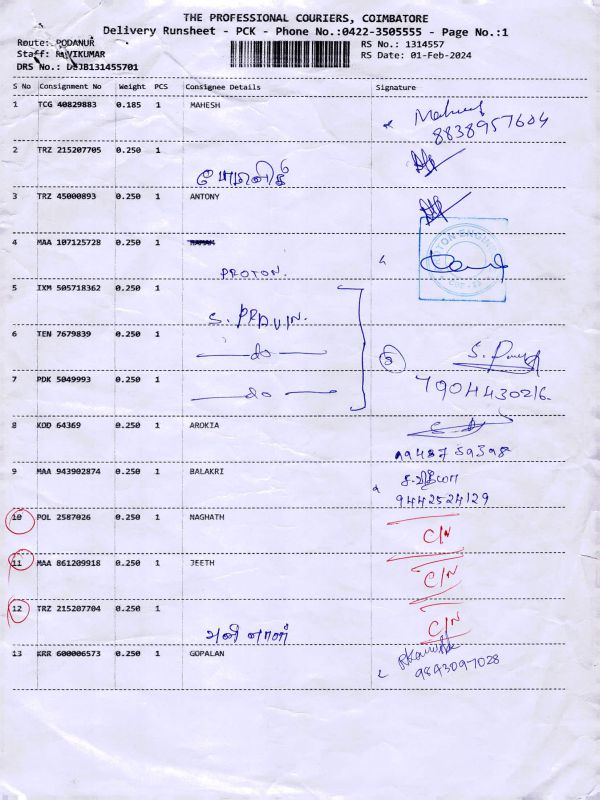 THE PROFESSIONAL COURIERS, COIMBATORE
Delivery Runsheet - PCK - Phone No.:0422-3505555 - Page No.:1
Route: PODANUR
RS No.: 1314557
Staff: RAVIKUMAR
RS Date: 01-Feb-2024
DRS No.: DSJB131455701
S No Consignment No Weight PCS Consignee Details Signature
1 TCG 40829883 0.185 1 MAHESH
8838957604
2 TRZ 215207705 0.250 1
3 TRZ 45000893 0.250 1 ANTONY
4 MAA 107125728 0.250 1
PROTON.
5 IXM 505718362 0.250 1
S. PRAVIN.
6 TEN 7679839 0.250 1
do
7 PDK 5049993 0.250 1
7904430216
do
8 KOD 64369 0.250 1 AROKIA
9487759398
9 MAA 943902874 0.250 1 BALAKRI
9442524129
10 POL 2587026 0.250 1 NAGHATH
C/N
11 MAA 861209918 0.250 1 JEETH
C/N
12 TRZ 215207704 0.250 1
C/N
13 KRR 600006573 0.250 1 GOPALAN
9843097028